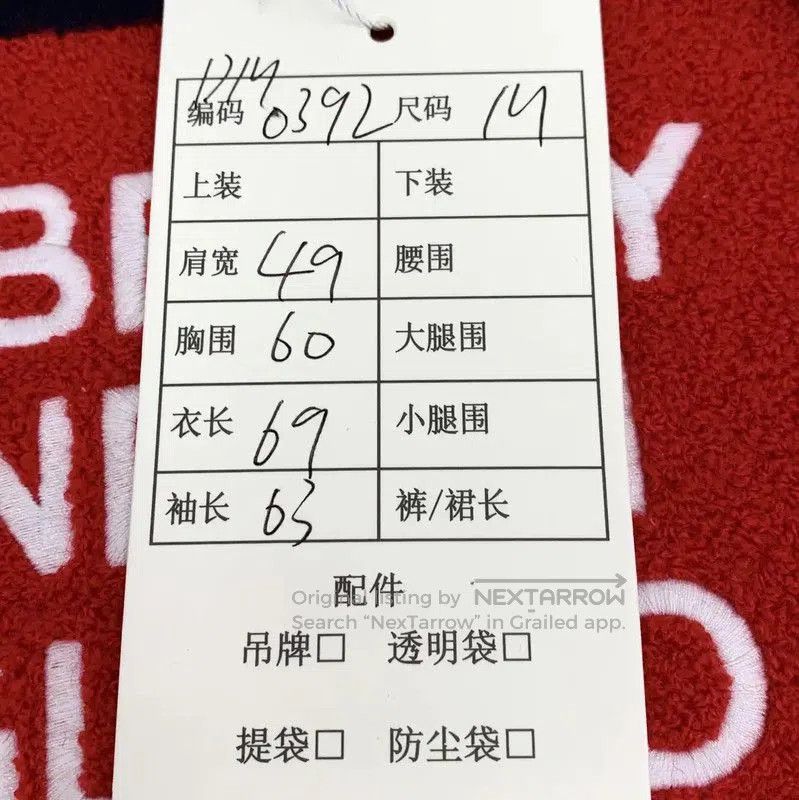 1214
编码 0392 尺码 14
上装 下装
肩宽 49 腰围
胸围 60 大腿围
衣长 69 小腿围
袖长 63 裤/裙长
配件
Original listing by NEXTARROW
Search “NexTarrow” in Grailed app.
吊牌□ 透明袋□
提袋□ 防尘袋□